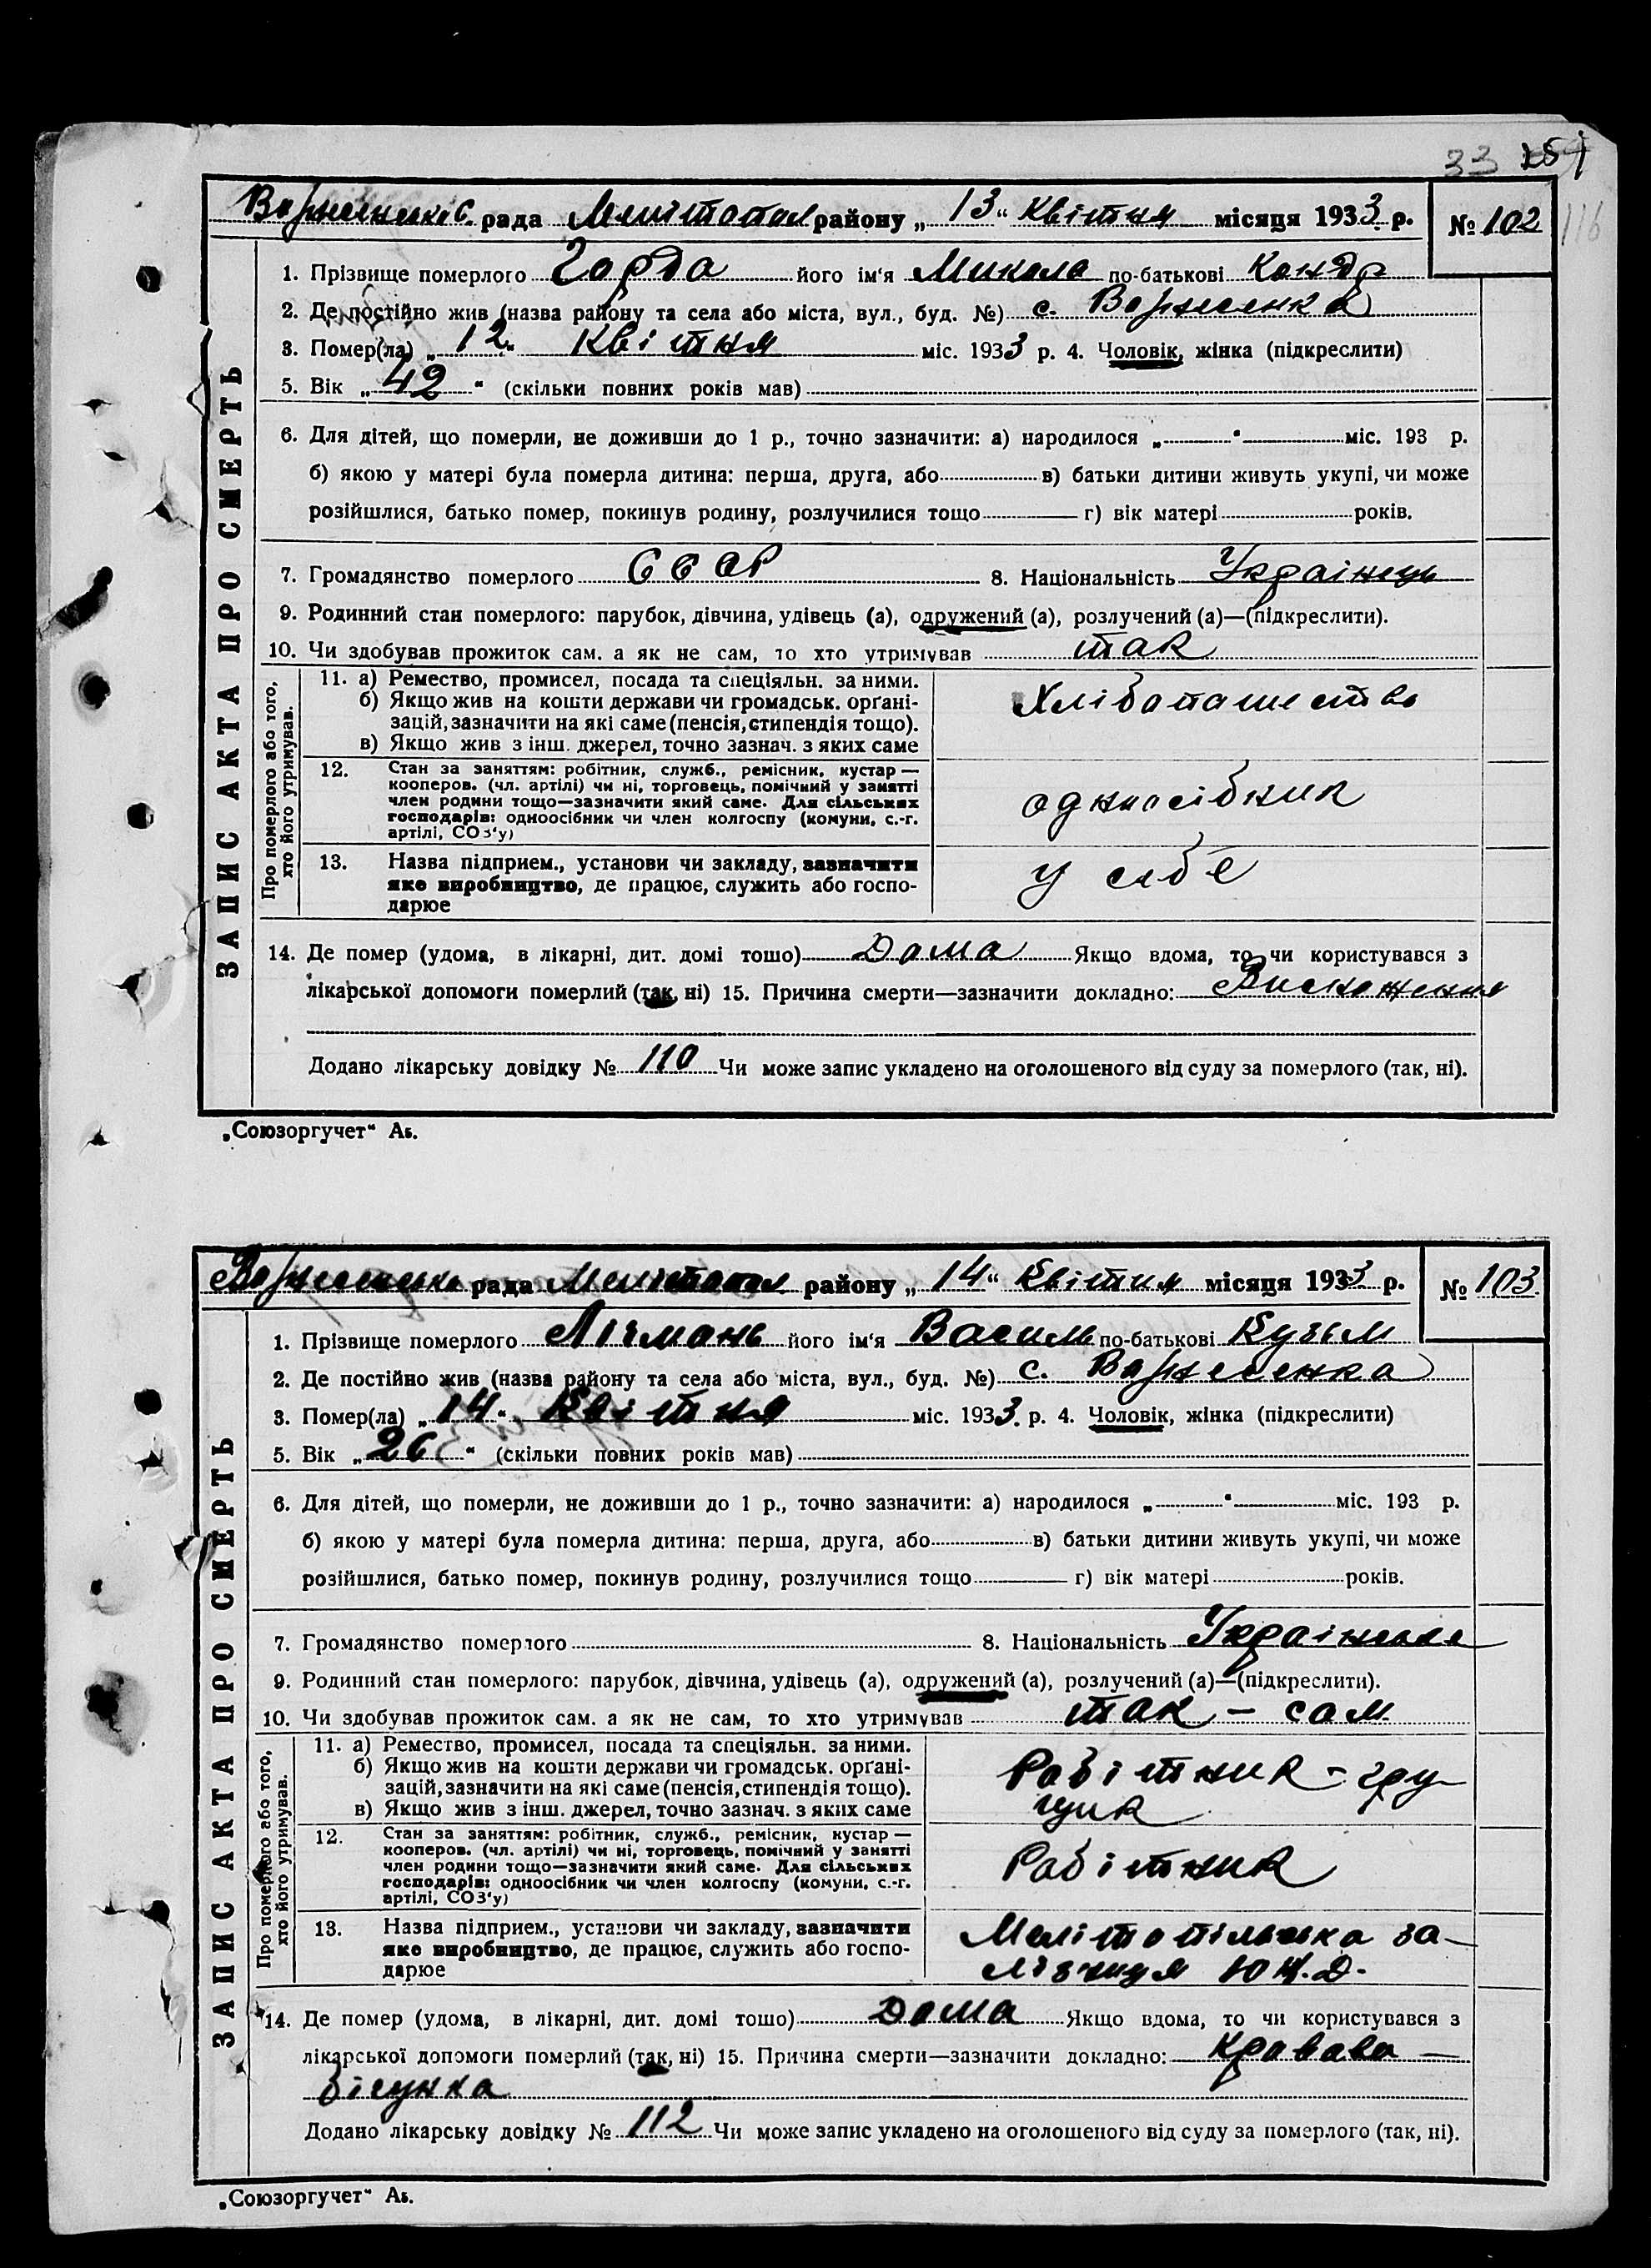 33 151
Вознесенська с. рада Мелітопол району „13“ Квітня місяця 1933 р. № 102
116
1. Прізвище померлого Горда його ім'я Микола по-батькові Кондр
2. Де постійно жив (назва району та села або міста, вул., буд. №) с. Вознесенка
3. Помер(ла) „12“ Квітня міс. 1933 р. 4. Чоловік, жінка (підкреслити)
5. Вік „42“ (скільки повних років мав)
6. Для дітей, що померли, не доживши до 1 р., точно зазначити: а) народилося „ “ міс. 193 р.
б) якою у матері була померла дитина: перша, друга, або в) батьки дитини живуть укупі, чи може
розійшлися, батько помер, покинув родину, розлучилися тощо г) вік матері років.
7. Громадянство померлого СССР 8. Національність Українець
9. Родинний стан померлого: парубок, дівчина, удівець (а), одружений (а), розлучений (а)—(підкреслити).
10. Чи здобував прожиток сам. а як не сам, то хто утримував так
ЗАПИС АКТА ПРО СМЕРТЬ
Про померлого або того,
хто його утримував.
11. а) Ремество, промисел, посада та спеціяльн. за ними.
б) Якщо жив на кошти держави чи громадськ. орґані-
зацій, зазначити на які саме (пенсія, стипендія тощо).
в) Якщо жив з інш. джерел, точно зазнач. з яких саме
Хлібопашество
12. Стан за заняттям: робітник, служб., ремісник, кустар —
кооперов. (чл. артілі) чи ні, торговець, помічний у занятті
член родини тощо—зазначити який саме. Для сільських
господарів: одноосібник чи член колгоспу (комуни, с.-г.
артілі, СОЗ'у)
одноосібник
13. Назва підприєм., установи чи закладу, зазначити
яке виробництво, де працює, служить або госпо-
дарює
у себе
14. Де помер (удома, в лікарні, дит. домі тошо) Дома Якщо вдома, то чи користувався з
лікарської допомоги померлий (так, ні) 15. Причина смерти—зазначити докладно: Виснаження
Додано лікарську довідку № 110 Чи може запис укладено на оголошеного від суду за померлого (так, ні).
„Союзоргучет“ Аь.
Вознесенська рада Мелітопол району „14“ Квітня місяця 1933 р. № 103
1. Прізвище померлого Лічмань його ім'я Василь по-батькові Кузьм
2. Де постійно жив (назва району та села або міста, вул., буд. №) с. Вознесенка
3. Помер(ла) „14“ Квітня міс. 1933. р. 4. Чоловік, жінка (підкреслити)
5. Вік „26“ (скільки повних років мав)
6. Для дітей, що померли, не доживши до 1 р., точно зазначити: а) народилося „ “ міс. 193 р.
б) якою у матері була померла дитина: перша, друга, або в) батьки дитини живуть укупі, чи може
розійшлися, батько помер, покинув родину, розлучилися тощо г) вік матері років.
7. Громадянство померлого 8. Національність
9. Родинний стан померлого: парубок, дівчина, удівець (а), одружений (а), розлучений (а)—(підкреслити).
10. Чи здобував прожиток сам. а як не сам, то хто утримував так - сам
ЗАПИС АКТА ПРО СМЕРТЬ
Про померлого або того,
хто його утримував.
11. а) Ремество, промисел, посада та спеціяльн. за ними.
б) Якщо жив на кошти держави чи громадськ. орґані-
зацій, зазначити на які саме (пенсія, стипендія тощо).
в) Якщо жив з інш. джерел, точно зазнач. з яких саме
Робітник - гру
щик
12. Стан за заняттям: робітник, служб., ремісник, кустар —
кооперов. (чл. артілі) чи ні, торговець, помічний у занятті
член родини тощо—зазначити який саме. Для сільських
господарів: одноосібник чи член колгоспу (комуни, с.-г.
артілі, СОЗ'у)
Робітник
13. Назва підприєм., установи чи закладу, зазначити
яке виробництво, де працює, служить або госпо-
дарює
Мелітопільска за-
лізниця
14. Де помер (удома, в лікарні, дит. домі тошо) Дома Якщо вдома, то чи користувався з
лікарської допомоги померлий (так, ні) 15. Причина смерти—зазначити докладно: Кровава
бігунка
Додано лікарську довідку № 112 Чи може запис укладено на оголошеного від суду за померлого (так, ні).
„Союзоргучет“ Аь.